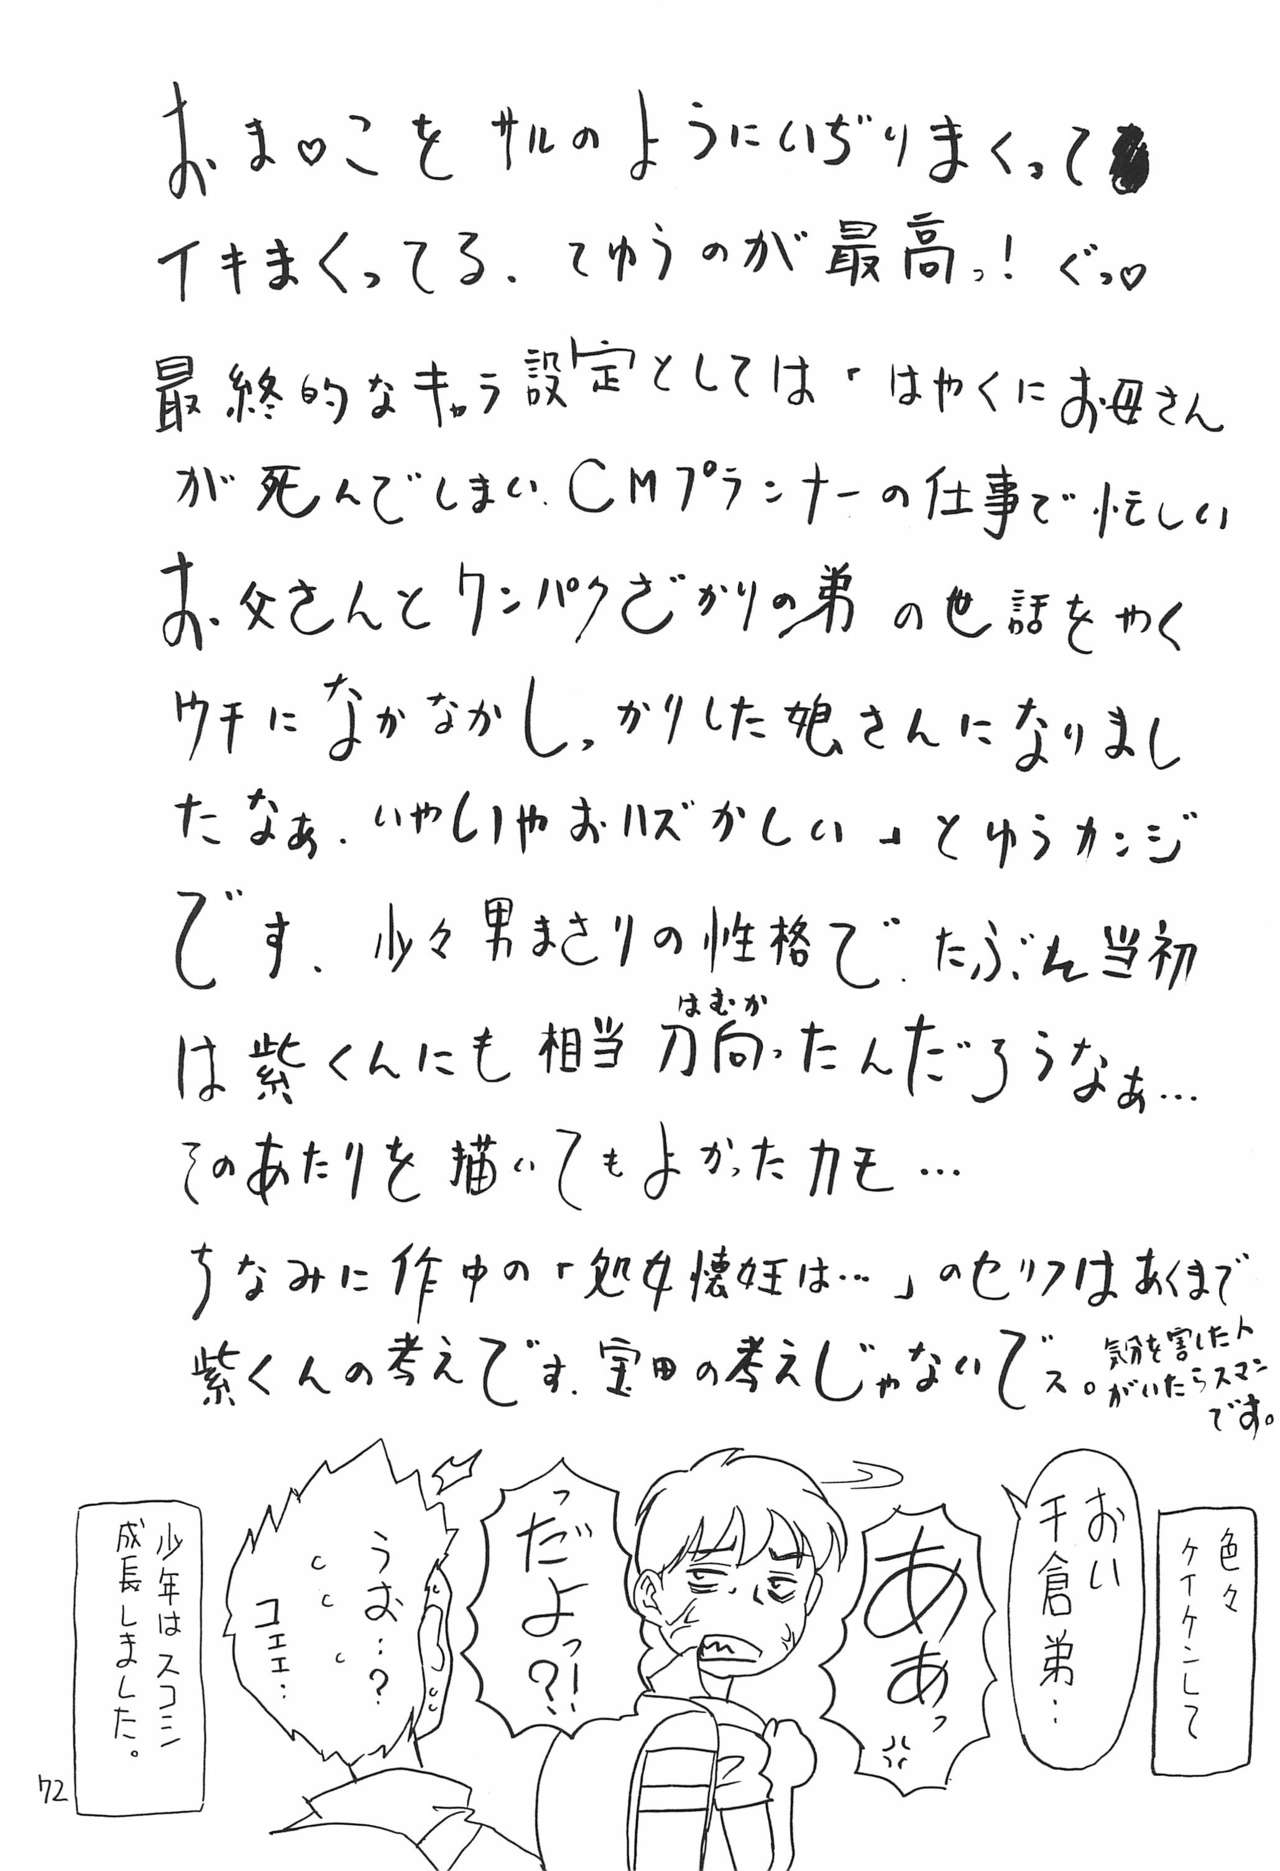 おま♡こをサルのようにいぢりまくって
イキまくってる、てゆうのが最高っ！ぐっ♡
最終的なキャラ設定としては「はやくにお母さん
が死んでしまい、CMプランナーの仕事で忙しい
お父さんとワンパクざかりの弟の世話をやく
ウチになかなかしっかりした娘さんになりまし
たなぁ、いやいやおハズかしい」とゆうカンジ
です、少々男まさりの性格で、たぶん当初
は紫くんにも相当刃向ったんだろうなぁ…
はむか
そのあたりを描いてもよかったカモ…
ちなみに作中の「処女懐妊は…」のセリフはあくまで
紫くんの考えです、宝田の考えじゃないでス。
気分を害した人
がいたらスマン
です。
色々
ケイケンして
おい
千倉弟…
あ
ぁっ
っだ
よっ
?!
うお…?
コェェ…
少年はスコシ
成長しました。
72